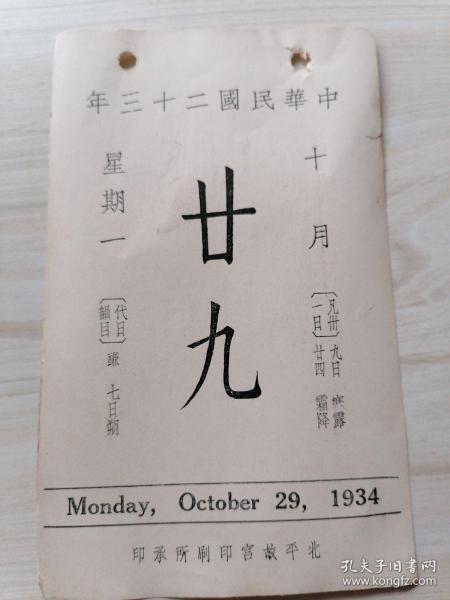 中華民國二十三年
十月
〔凡卅一日〕九日寒露
廿四霜降
廿九
星期一
〔代日韻目〕豏 七日朔
Monday, October 29, 1934
北平故宮印刷所承印
孔夫子旧书网
www.kongfz.com